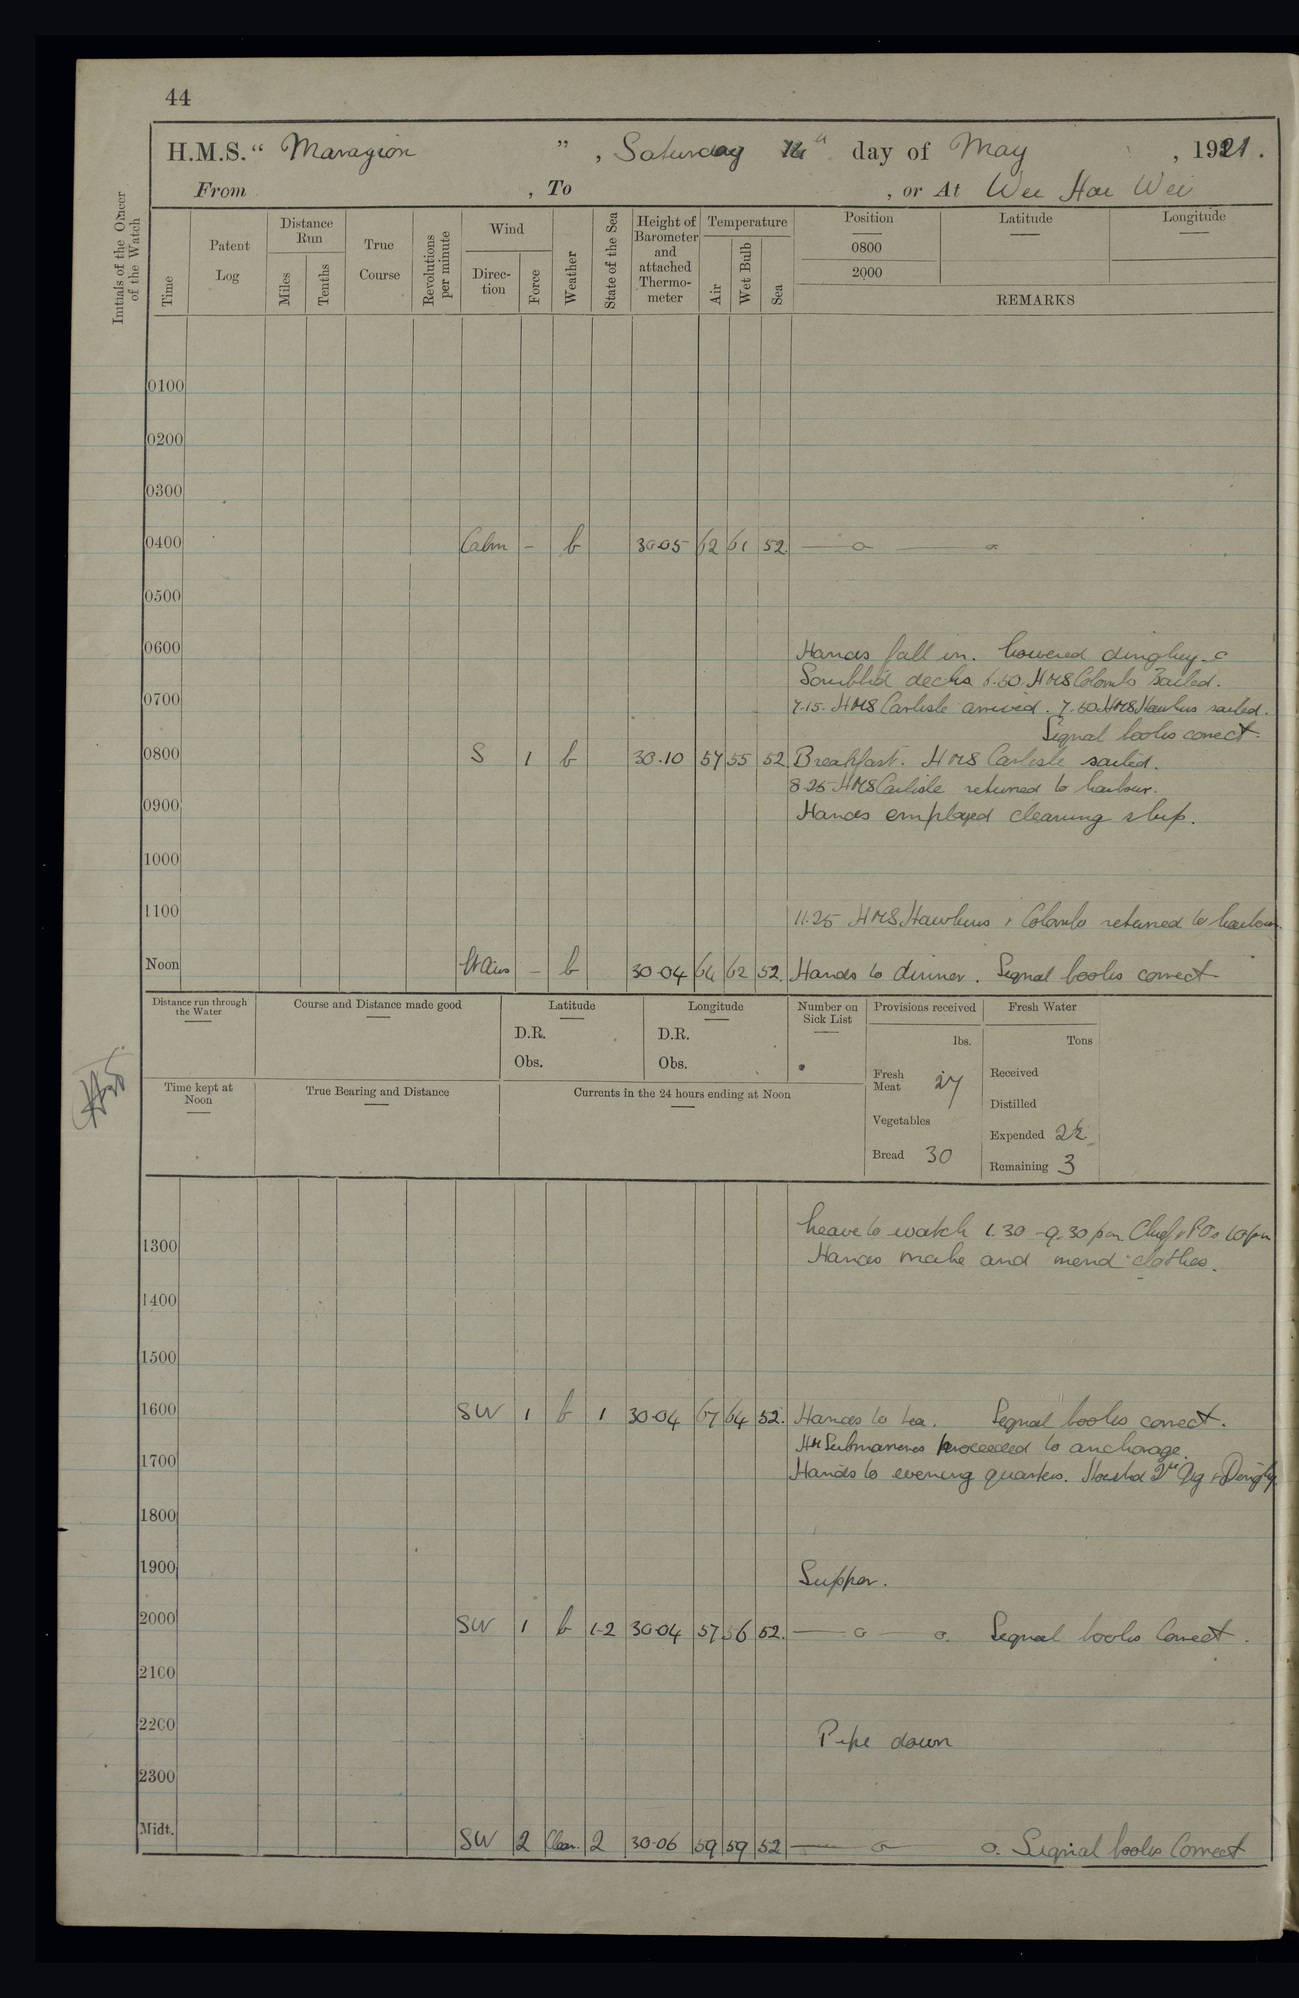 44
H.M.S. “ Marazion ” , Saturday 14th day of May , 1921 .
From , To , or At Wei Hai Wei
Initials of the Officer of the Watch
Time
Patent Log
Distance Run
Miles
Tenths
True Course
Revolutions per minute
Wind
Direc- tion
Force
Weather
State of the Sea
Height of Barometer and attached Thermo- meter
Temperature
Air
Wet Bulb
Sea
Position Latitude Longitude
0800
2000
REMARKS
0100
0200
0300
0400 Calm – b 30.05 62 61 52
0500
0600 Hands fall in. Lowered dinghey.
Scrubbed decks 6.50 HMS Colombo Sailed.
0700 7.15. HMS Carlisle arrived. 7.50 HMS Hawkins sailed.
Signal books correct.
0800 S 1 b 30.10 57 55 52 Breakfast. HMS Carlisle sailed.
8.25 HMS Carlisle returned to harbour.
0900 Hands employed cleaning ship.
1000
1100 11.25 HMS Hawkins + Colombo returned to harbour.
Noon Lt Airs – b 30.04 64 62 52. Hands to dinner. Signal books correct
Distance run through the Water
Course and Distance made good
Latitude
D.R.
Obs.
Longitude
D.R.
Obs.
Number on Sick List
Provisions received
lbs.
Fresh Meat 27
Vegetables
Bread 30
Fresh Water
Tons
Received
Distilled
Expended 2½
Remaining 3
Time kept at Noon
True Bearing and Distance
Currents in the 24 hours ending at Noon
Leave to watch 1.30 – 9.30 pm Chief + POs 10 pm
1300 Hands make and mend clothes.
1400
1500
1600 SW 1 b 1 30.04 67 64 52. Hands to tea. Signal books correct.
HM Submarines proceeded to anchorage.
1700 Hands to evening quarters. Hoisted 2nd Gig + Dinghy
1800
1900 Supper.
2000 SW 1 b 1-2 30.04 57 56 52. Signal books Correct.
2100
2200 Pipe down
2300
Midt. SW 2 Clear. 2 30.06 59 59 52 Signal books Correct